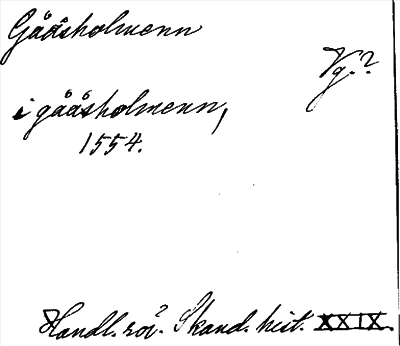 Gååsholmenn
Vg.?
i gååsholmenn,
1554.
Handl. rör. Skand. hist. XXIX.